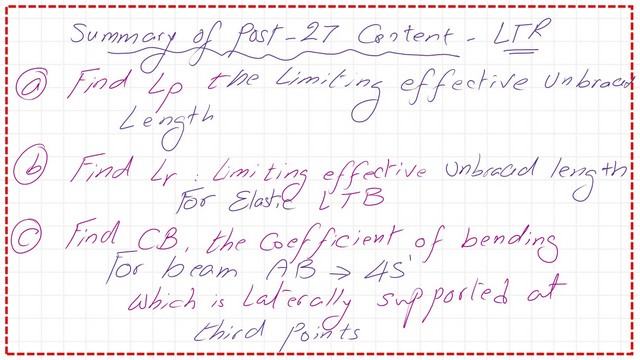 Summary of Post-27 Content - LTR
a Find Lp the Limiting effective Unbraced
Length
b Find Lr : Limiting effective Unbraced length
For Elastic LTB
c Find CB, the Coefficient of bending
For beam AB → 45'
Which is Laterally supported at
third points